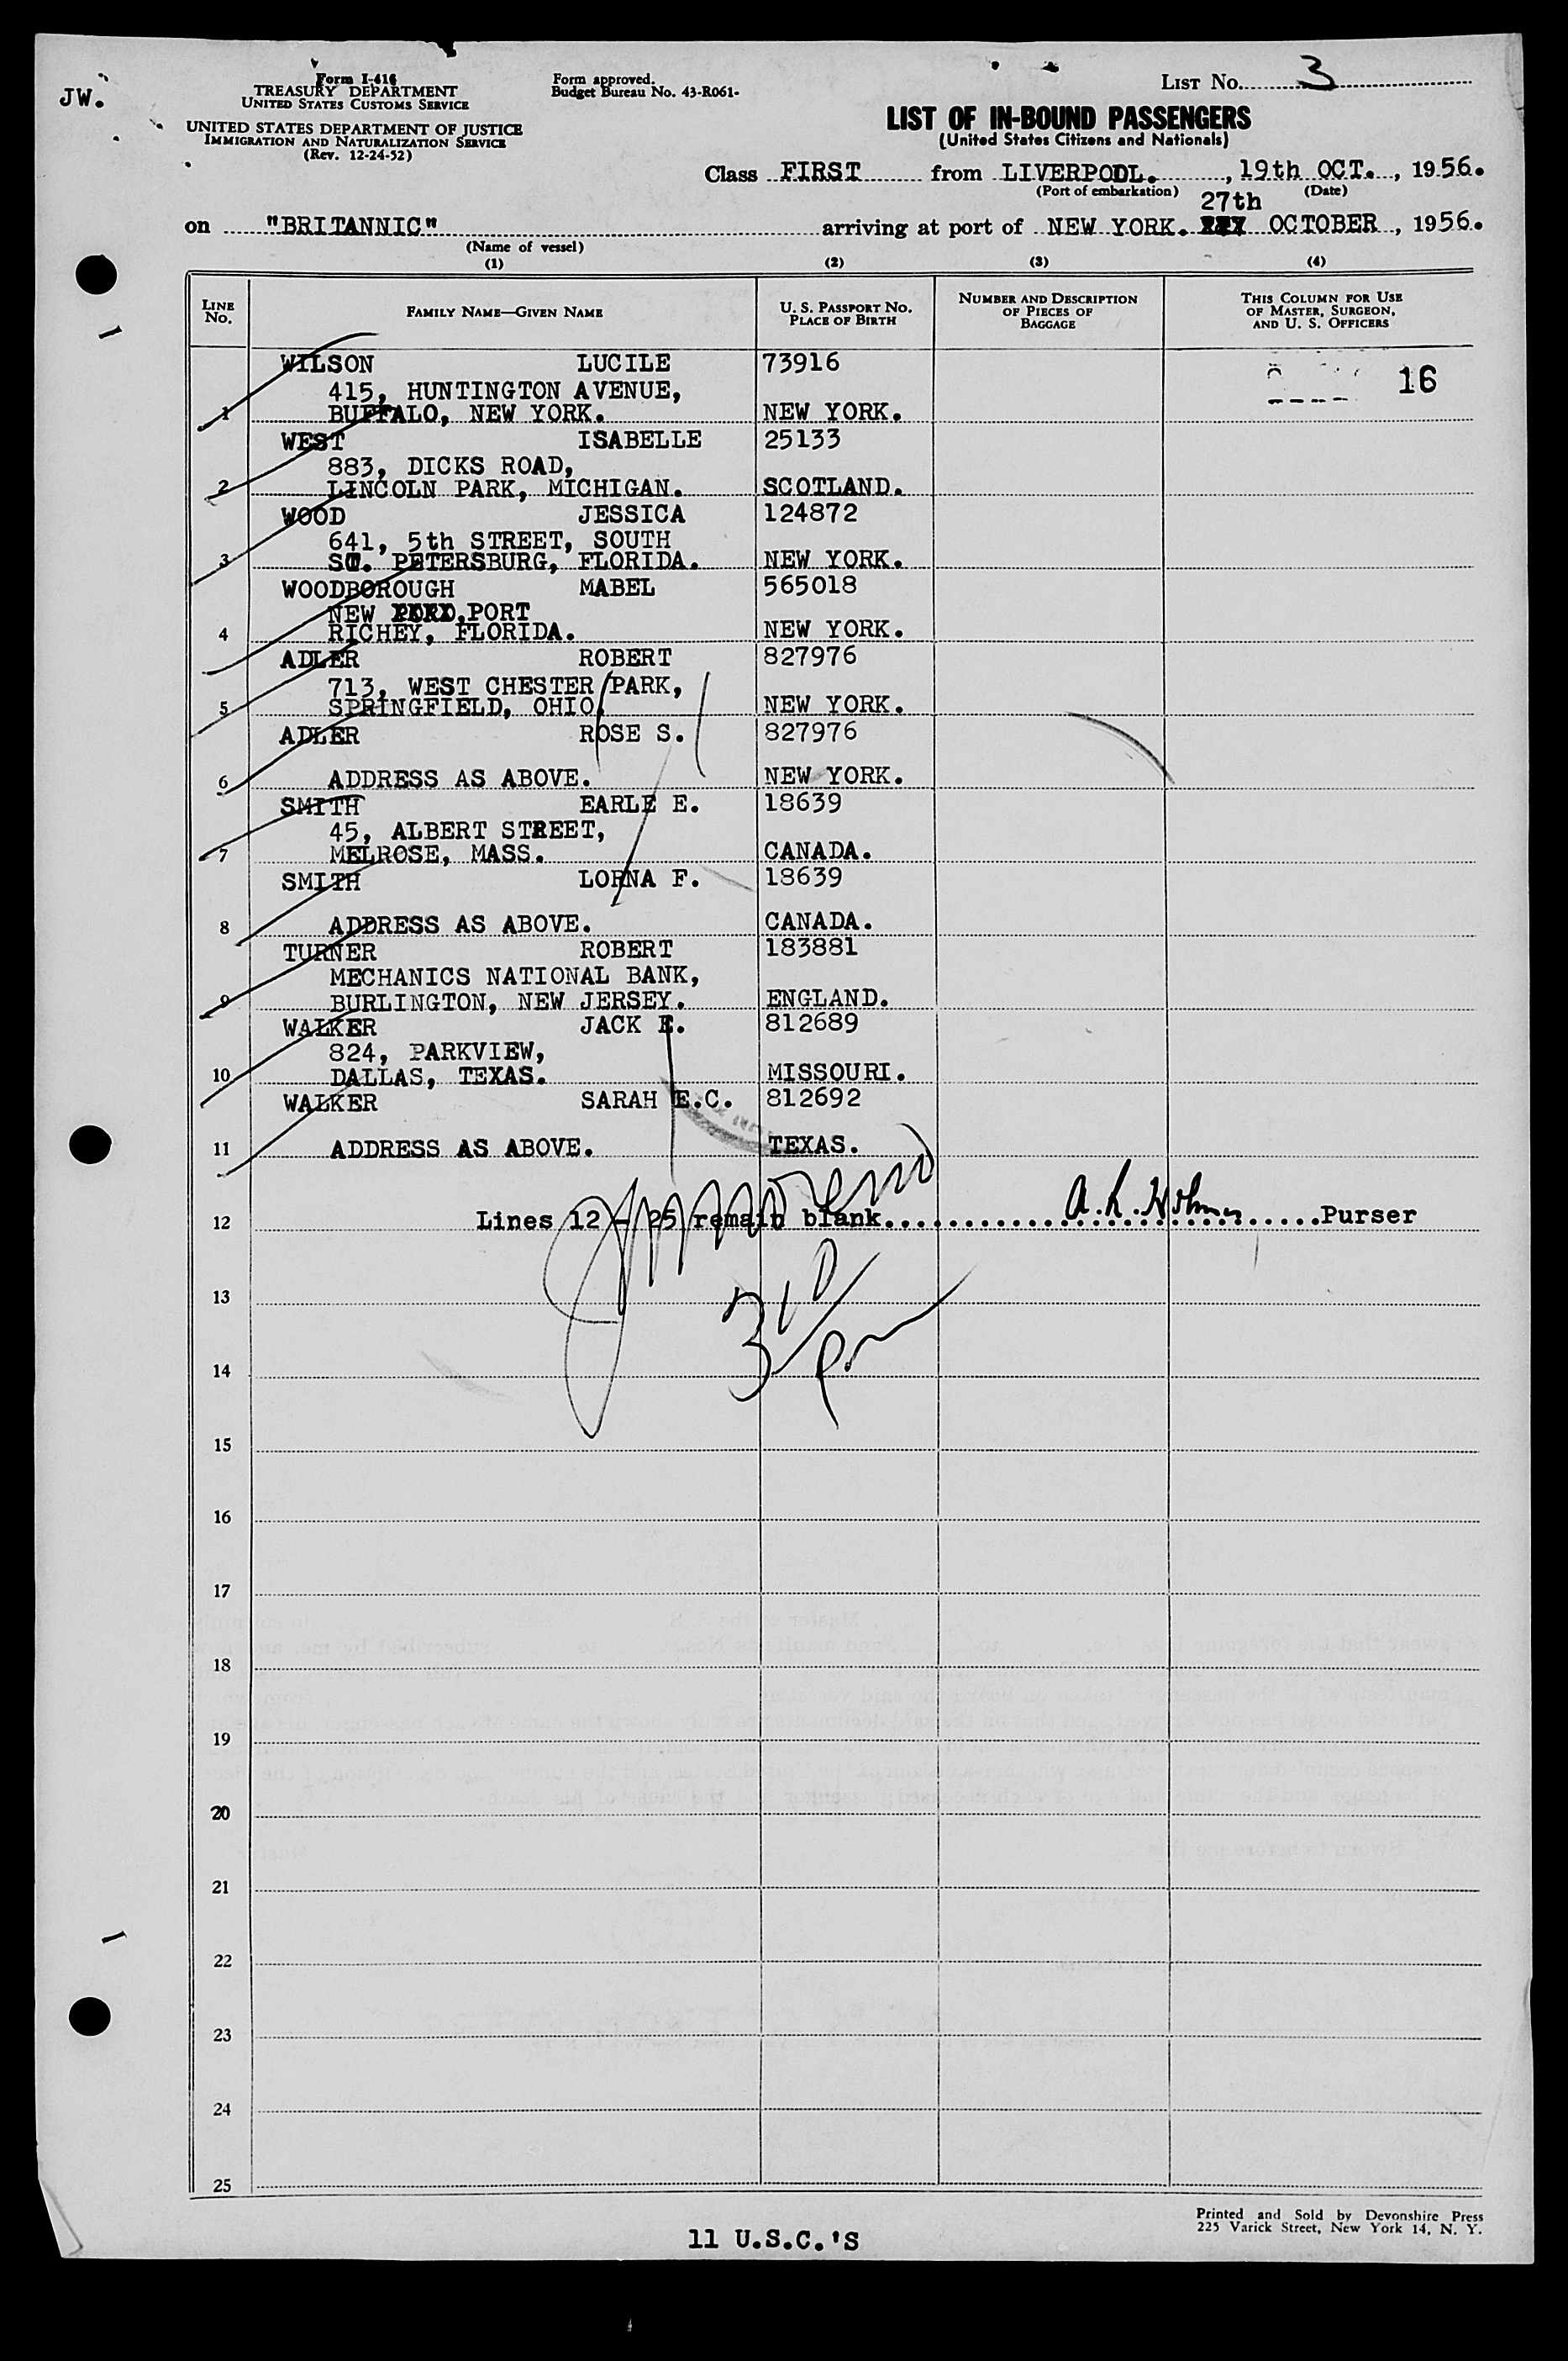 JW.
Form I-416
TREASURY DEPARTMENT
UNITED STATES CUSTOMS SERVICE
UNITED STATES DEPARTMENT OF JUSTICE
IMMIGRATION AND NATURALIZATION SERVICE
(Rev. 12-24-52)
Form approved.
Budget Bureau No. 43-R061-
LIST No. 3
LIST OF IN-BOUND PASSENGERS
(United States Citizens and Nationals)
Class FIRST from LIVERPOOL. , 19th OCT. , 1956.
(Port of embarkation) (Date)
27th
on "BRITANNIC" arriving at port of NEW YORK. OCTOBER , 1956.
(Name of vessel)
(1) (2) (3) (4)
LINE No. FAMILY NAME—GIVEN NAME U. S. PASSPORT No. PLACE OF BIRTH NUMBER AND DESCRIPTION OF PIECES OF BAGGAGE THIS COLUMN FOR USE OF MASTER, SURGEON, AND U. S. OFFICERS
WILSON LUCILE 73916
415, HUNTINGTON AVENUE, 16
1 BUFFALO, NEW YORK. NEW YORK.
WEST ISABELLE 25133
883, DICKS ROAD,
2 LINCOLN PARK, MICHIGAN. SCOTLAND.
WOOD JESSICA 124872
641, 5th STREET, SOUTH
3 ST. PETERSBURG, FLORIDA. NEW YORK.
WOODBOROUGH MABEL 565018
NEW PORT
4 RICHEY, FLORIDA. NEW YORK.
ADLER ROBERT 827976
713, WEST CHESTER PARK,
5 SPRINGFIELD, OHIO. NEW YORK.
ADLER ROSE S. 827976
6 ADDRESS AS ABOVE. NEW YORK.
SMITH EARLE E. 18639
45, ALBERT STREET,
7 MELROSE, MASS. CANADA.
SMITH LORNA F. 18639
8 ADDRESS AS ABOVE. CANADA.
TURNER ROBERT 183881
MECHANICS NATIONAL BANK,
9 BURLINGTON, NEW JERSEY. ENGLAND.
WALKER JACK E. 812689
824, PARKVIEW,
10 DALLAS, TEXAS. MISSOURI.
WALKER SARAH E.C. 812692
11 ADDRESS AS ABOVE. TEXAS.
12 Lines 12 - 25 remain blank. Purser
3 10/pm
13
14
15
16
17
18
19
20
21
22
23
24
25
Printed and Sold by Devonshire Press
225 Varick Street, New York 14, N. Y.
11 U.S.C.'S